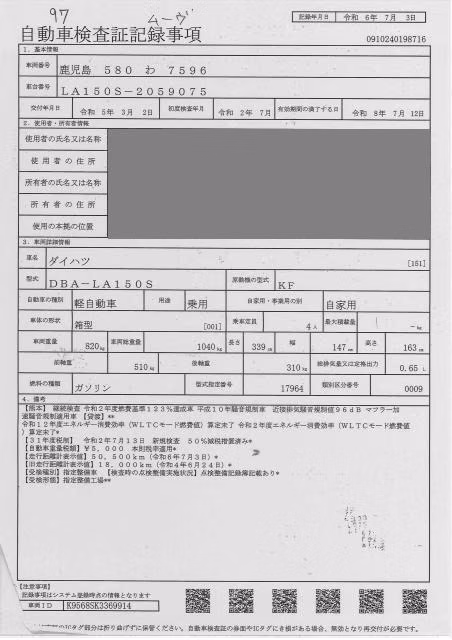 97 ムーヴ
記録年月日 令和 6年 7月 3日
自動車検査証記録事項
0910240198716
1. 基本情報
車両番号 鹿児島 580 わ 7596
車台番号 LA150S-2059075
交付年月日 令和 5年 3月 2日 初度検査年月 令和 2年 7月 有効期間の満了する日 令和 8年 7月 12日
2. 使用者・所有者情報
使用者の氏名又は名称
使用者の住所
所有者の氏名又は名称
所有者の住所
使用の本拠の位置
3. 車両詳細情報
車名 ダイハツ [151]
型式 DBA-LA150S 原動機の型式 KF
自動車の種別 軽自動車 用途 乗用 自家用・事業用の別 自家用
車体の形状 箱型 [001] 乗車定員 4人 最大積載量 -kg
車両重量 820kg 車両総重量 1040kg 長さ 339cm 幅 147cm 高さ 163cm
前軸重 510kg 後軸重 310kg 総排気量又は定格出力 0.65 L
燃料の種類 ガソリン 型式指定番号 17964 類別区分番号 0009
4. 備考
【熊本】 継続検査 令和2年度燃費基準123%達成車 平成10年騒音規制車 近接排気騒音規制値96dB マフラー加
速騒音規制適用車 【貸渡】**
令和12年度エネルギー消費効率(WLTCモード燃費値)算定未了 令和2年度エネルギー消費効率(WLTCモード燃費値
)算定未了*
【31年度税制】 令和2年7月13日 新規検査 50%減税措置済み*
【自動車重量税額】¥5,000 本則税率適用*
【走行距離計表示値】50,500km(令和6年7月3日)*
【旧走行距離計表示値】18,000km(令和4年6月24日)*
【受検種別】指定整備車 【検査時の点検整備実施状況】点検整備記録簿記載あり*
【受検形態】指定整備工場**
【注意事項】
記録事項はシステム登録時点の情報となります
車両ID K9568SK3369914
ICタグ部分は折り曲げずに保管ください。自動車検査証の券面やICタグにき損がある場合、無効となり再交付が必要です。